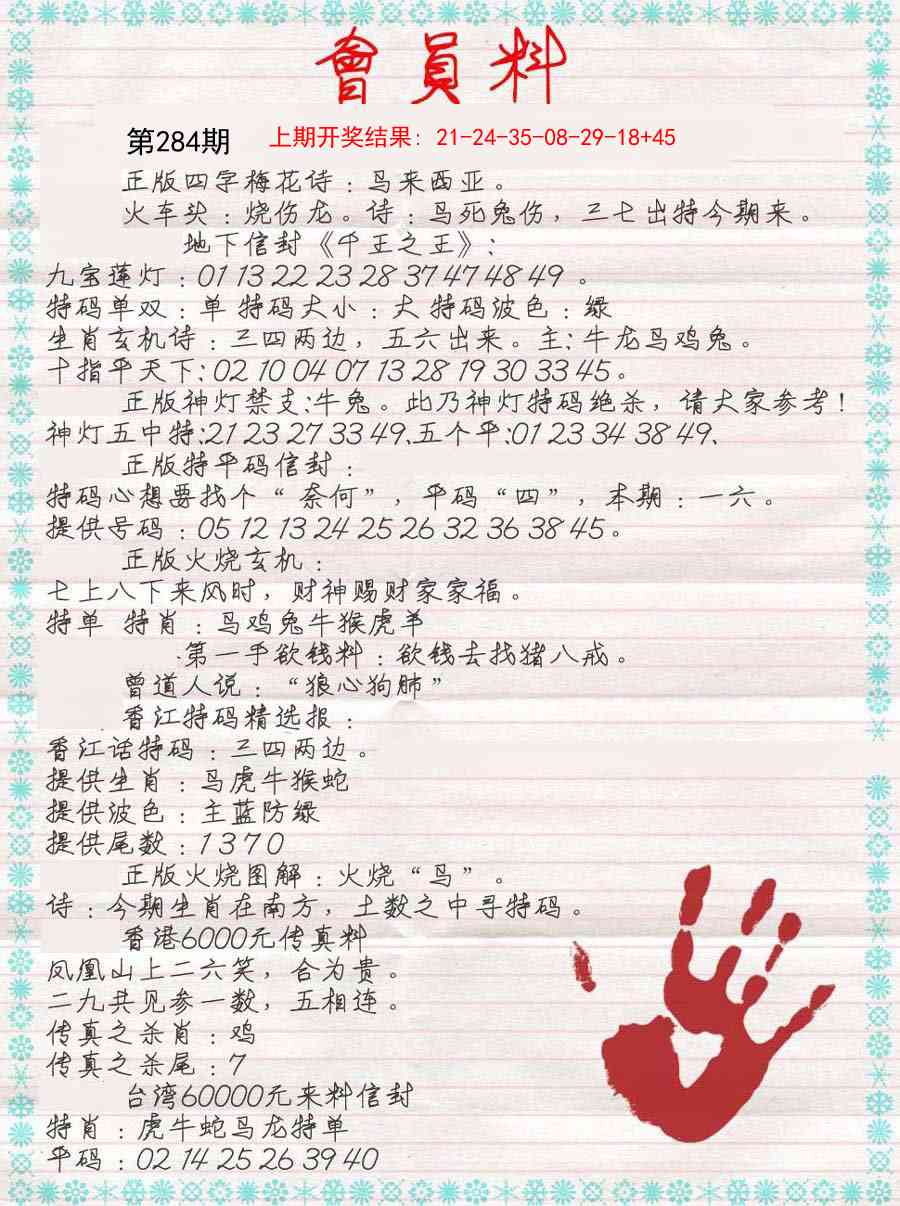 會員料
第284期 上期开奖结果: 21-24-35-08-29-18+45
正版四字梅花诗：鸟来西亚。
火车头：烧伤龙。诗：鸟死兔伤，三七出特今期来。
地下信封《千王之王》：
九宝莲灯：01 13 22 23 28 37 47 48 49 。
特码单双：单 特码大小：大 特码波色：绿
生肖玄机诗：三四两边，五六出来。主：牛龙鸟鸡兔。
十指平天下：02 10 04 07 13 28 19 30 33 45。
正版神灯禁支：牛兔。此乃神灯特码绝杀，请大家参考！
神灯五中特：21 23 27 33 49、五个平：01 23 34 38 49、
正版特平码信封：
特码心想要找个“ 奈何”，平码“四”，本期：一六。
提供号码：05 12 13 24 25 26 32 36 38 45。
正版火烧玄机：
七上八下来风时，财神赐财家家福。
特单 特肖：鸟鸡兔牛猴虎羊
.第一手欲钱料：欲钱去找猪八戒。
曾道人说：“狼心狗肺”
香江特码精选报：
香江话特码：三四两边。
提供生肖：鸟虎牛猴蛇
提供波色：主蓝防绿
提供尾数：1 3 7 0
正版火烧图解：火烧“鸟”。
诗：今期生肖在南方，土数之中寻特码。
香港6000元传真料
凤凰山上二六笑，合为贵。
二九共见参一数，五相连。
传真之杀肖：鸡
传真之杀尾：7
台湾60000元来料信封
特肖：虎牛蛇鸟龙特单
平码：02 14 25 26 39 40